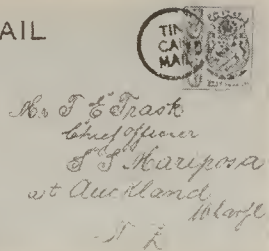 AIL
TIN
CAN
MAIL
Mr T E Trask
Chief Officer
S S Mariposa
at Auckland
Wharf
N Z